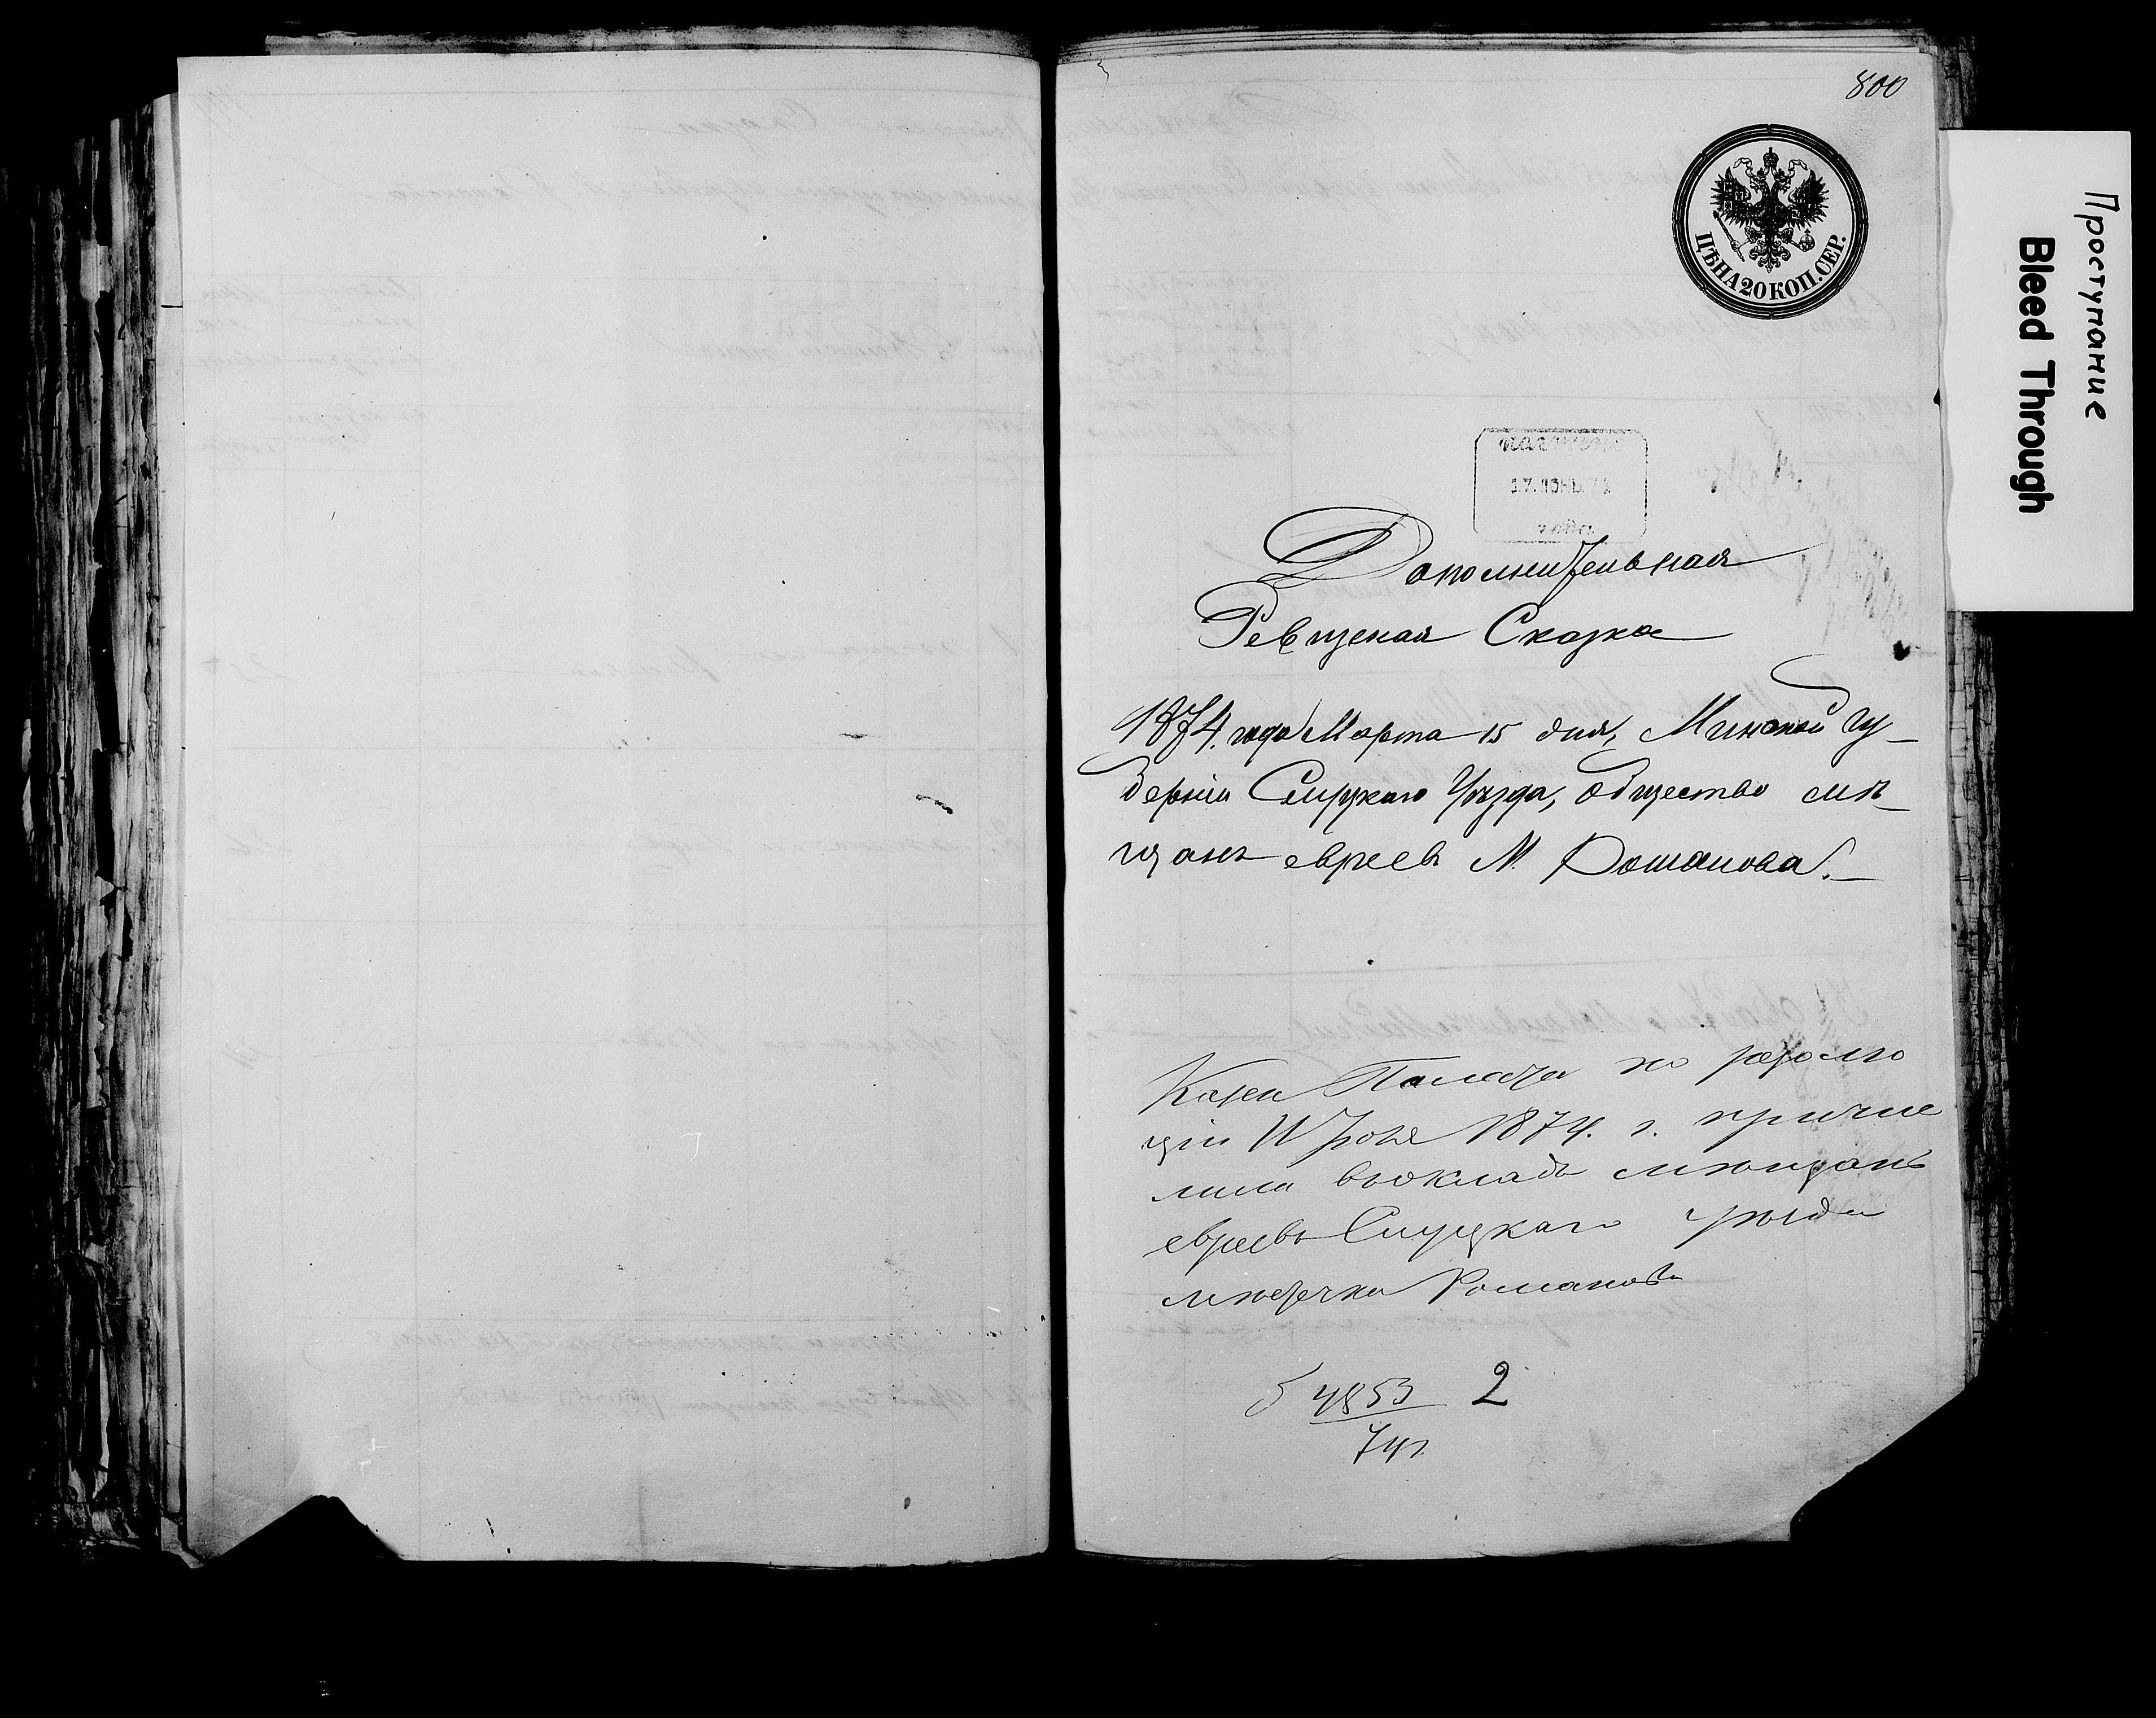 800
ЦѢНА 20 КОП. СЕР.
Проступание
Bleed Through
Дополнительная
Ревизская Сказка
1874. года Марта 15 дня, Минской Гу-
берніи Слуцкаго Уѣзда, общество мѣ-
щанъ евреевъ М. Романова.
Казен Палата по резолю
ціи Іюля 1874. г. причис
лила въ окладъ мѣщанъ
евреевъ Слуцкаго уѣзда
мѣстечка Романова
4853 2
74 г.